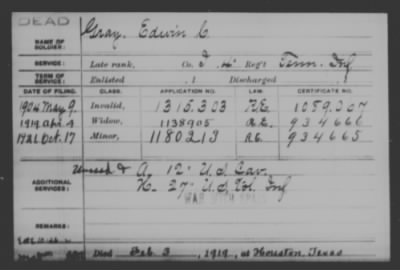 DEAD
NAME OF SOLDIER: Gray, Edwin C.
SERVICE: Late rank, Co. I, 4" Reg't Tenn. Inf
TERM OF SERVICE: Enlisted , 1 Discharged , 1
DATE OF FILING. CLASS. APPLICATION NO. LAW. CERTIFICATE NO.
1904 May 9. Invalid, 1315,303 1089,307
1919 Apr. 4 Widow, 1138905 934666
1921. Oct. 17 Minor, 1180213 934665
ADDITIONAL SERVICES: & A, 12" U.S. Cav.
K. 27" U.S. Vol. Inf
REMARKS:
Died Feb 3, 1919, at Houston, Texas